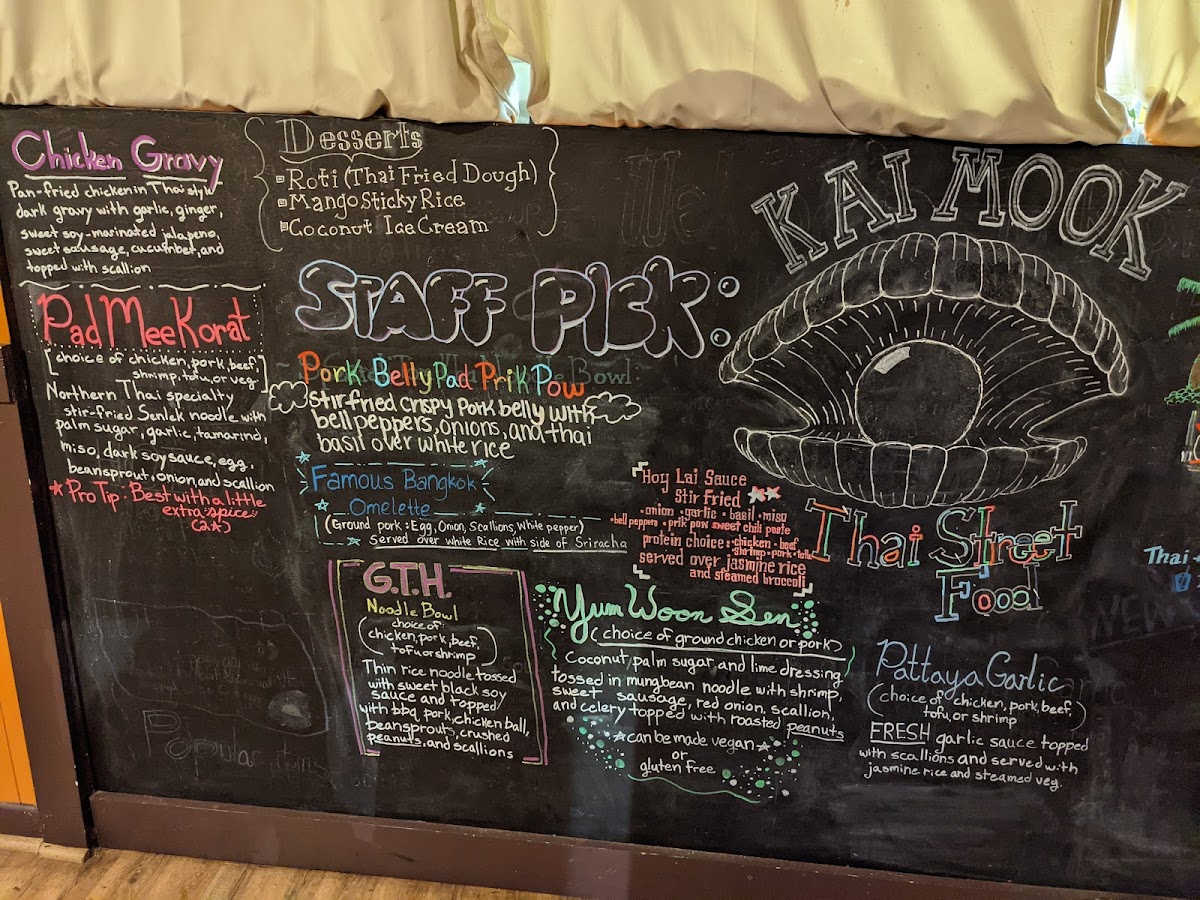 Chicken Gravy
Pan-fried chicken in Thai style
dark gravy with garlic, ginger,
sweet soy-marinated jalapeno,
sweet sausage, cucumber, and
topped with scallion
Pad Mee Korat
[choice of chicken, pork, beef,
shrimp, tofu, or veg]
Northern Thai specialty
stir-fried Senlek noodle with
palm sugar, garlic, tamarind,
miso, dark soy sauce, egg,
beansprout, onion, and scallion
Pro Tip: Best with a little
extra spice
(2★)
Popular items
Desserts
Roti (Thai Fried Dough)
Mango Sticky Rice
Coconut Ice Cream
STAFF PICK:
Pork Belly Pad Prik Pow
Bowl
stir fried crispy pork belly with
bell peppers, onions, and thai
basil over white rice
Famous Bangkok
Omelette
(Ground pork: Egg, Onion, Scallions, White pepper)
Served over white Rice with side of Sriracha
G.T.H.
Noodle Bowl
choice of:
(chicken, pork, beef,
tofu or shrimp)
Thin rice noodle tossed
with sweet black soy
sauce and topped
with bbq pork, chicken ball,
beansprouts, crushed
peanuts, and scallions
Hoy Lai Sauce
Stir Fried ★★
onion • garlic • basil • miso
• bell peppers • prik pow sweet chili paste
protein choice: • chicken • beef
• shrimp • pork • tofu
served over jasmine rice
and steamed broccoli
Yum Woon Sen
(choice of ground chicken or pork)
Coconut, palm sugar, and lime dressing
tossed in mungbean noodle with shrimp,
sweet sausage, red onion, scallion,
and celery topped with roasted peanuts
★can be made vegan★
or
gluten free
KAI MOOK
Thai Street
Food
Pattaya Garlic
(choice of chicken, pork, beef,
tofu, or shrimp)
FRESH garlic sauce topped
with scallions and served with
jasmine rice and steamed veg.
Thai
NEW